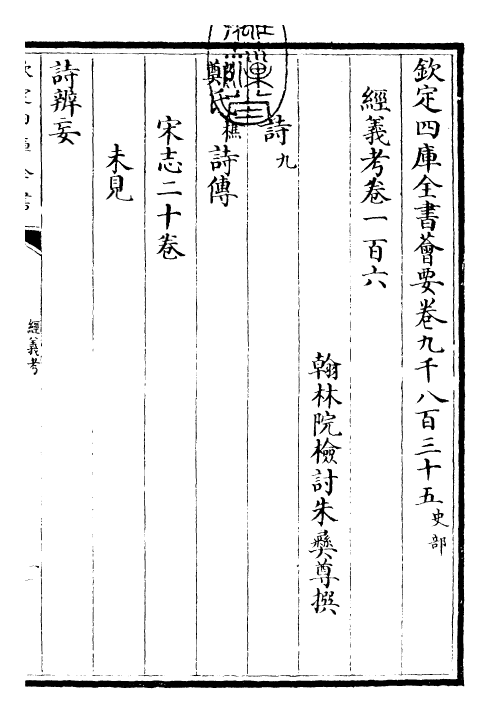 欽定四庫全書薈要卷九千八百三十五史部
經義考卷一百六
翰林院檢討朱彞尊撰
詩九
鄭氏樵詩傳
宋志二十卷
未見
詩辨妄
經義考